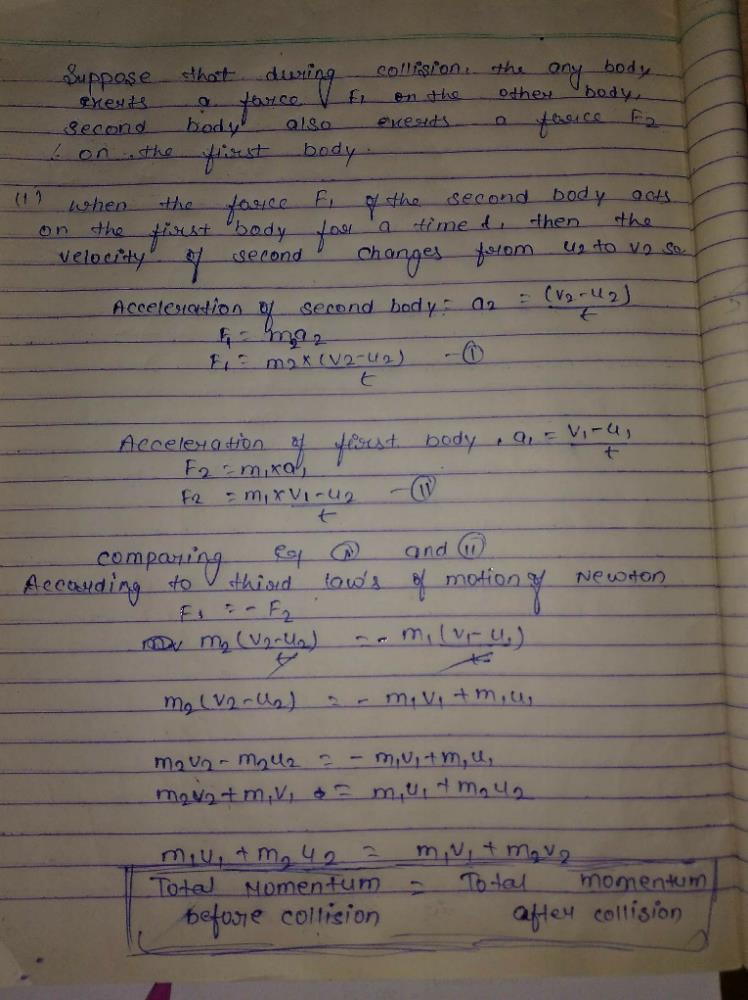 Suppose that during collision, the any body
exerts a force F₁ on the other body,
second body also exerts a force F2
∴ on the first body.
(1) when the force F₁ of the second body acts
on the first body for a time t, then the
velocity of second changes from u2 to v2 so
Acceleration of second body = a2 = (v2-u2)/t
F₁ = m2a2
F₁ = m2x(v2-u2)/t - (i)
Acceleration of first body, a₁ = v₁-u₁/t
F2 = m₁xa₁
F2 = m₁xv₁-u2/t - (ii)
comparing eq (i) and (ii)
According to third law's of motion of Newton
F₁ = - F2
m2(v2-u2)/t = - m₁(v₁-u₁)/t
m2(v2-u2) = - m₁v₁+m₁u₁
m2v2-m2u2 = - m₁v₁+m₁u₁
m2v2+m₁v₁ = m₁u₁+m2u2
m₁u₁+m2u2 = m₁v₁+m2v2
Total Momentum = Total momentum
before collision after collision